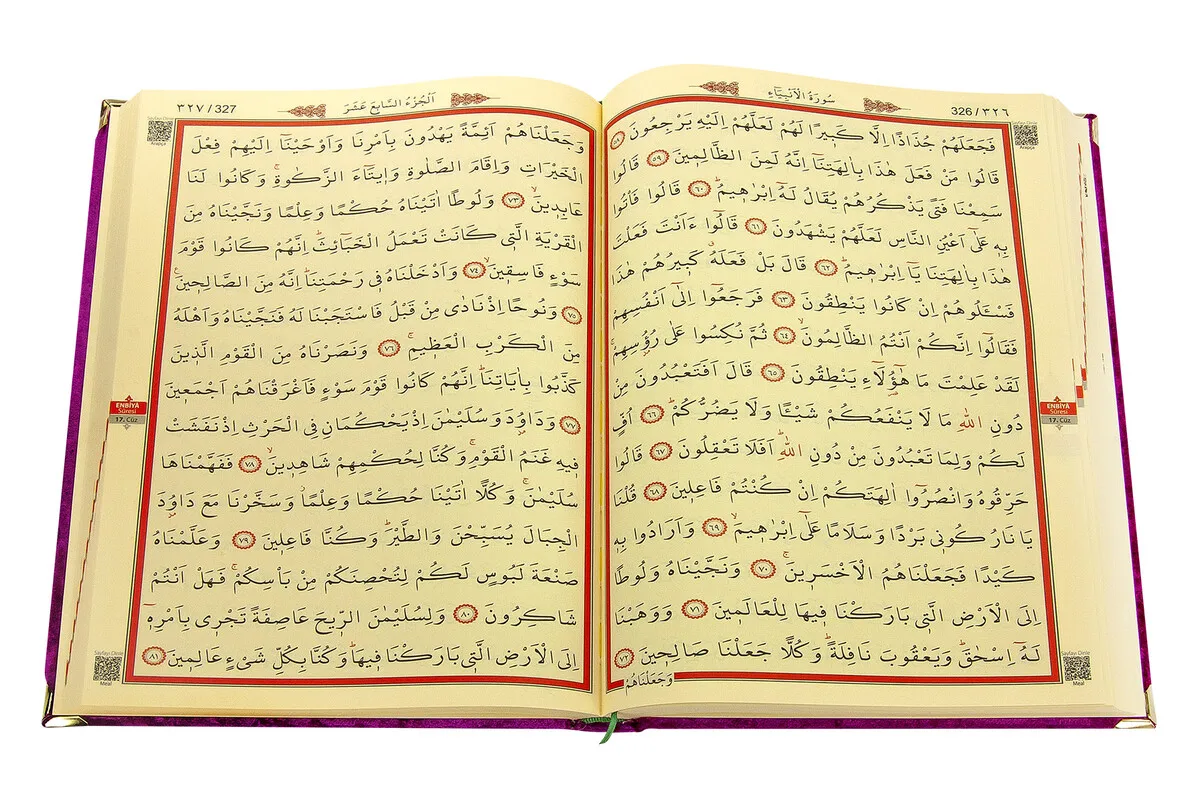 326 / ٣٢٦
سُورَةُ الْاَنْبِيَاءِ
فَجَعَلَهُمْ جُذَاذًا اِلَّا كَب۪يرًا لَهُمْ لَعَلَّهُمْ اِلَيْهِ يَرْجِعُونَ ﴿٥٨﴾
قَالُوا مَنْ فَعَلَ هٰذَا بِاٰلِهَتِنَٓا اِنَّهُ لَمِنَ الظَّالِم۪ينَ ﴿٥٩﴾ قَالُوا
سَمِعْنَا فَتًى يَذْكُرُهُمْ يُقَالُ لَهُٓ اِبْرٰه۪يمُۜ ﴿٦٠﴾ قَالُوا فَأْتُوا
بِه۪ عَلٰٓى اَعْيُنِ النَّاسِ لَعَلَّهُمْ يَشْهَدُونَ ﴿٦١﴾ قَالُٓوا ءَاَنْتَ فَعَلْتَ
هٰذَا بِاٰلِهَتِنَا يَٓا اِبْرٰه۪يمُۜ ﴿٦٢﴾ قَالَ بَلْ فَعَلَهُۗ كَب۪يرُهُمْ هٰذَا
فَسْـَٔلُوهُمْ اِنْ كَانُوا يَنْطِقُونَ ﴿٦٣﴾ فَرَجَعُٓوا اِلٰٓى اَنْفُسِهِمْ
فَقَالُٓوا اِنَّكُمْ اَنْتُمُ الظَّالِمُونَۙ ﴿٦٤﴾ ثُمَّ نُكِسُوا عَلٰى رُؤُ۫سِهِمْۚ
لَقَدْ عَلِمْتَ مَا هٰٓؤُ۬لَٓاءِ يَنْطِقُونَ ﴿٦٥﴾ قَالَ اَفَتَعْبُدُونَ مِنْ
دُونِ اللّٰهِ مَا لَا يَنْفَعُكُمْ شَيْـًٔا وَلَا يَضُرُّكُمْۜ ﴿٦٦﴾ اُفٍّ
لَكُمْ وَلِمَا تَعْبُدُونَ مِنْ دُونِ اللّٰهِۜ اَفَلَا تَعْقِلُونَ ﴿٦٧﴾ قَالُوا
حَرِّقُوهُ وَانْصُرُٓوا اٰلِهَتَكُمْ اِنْ كُنْتُمْ فَاعِل۪ينَ ﴿٦٨﴾ قُلْنَا
يَا نَارُ كُون۪ي بَرْدًا وَسَلَامًا عَلٰٓى اِبْرٰه۪يمَۙ ﴿٦٩﴾ وَاَرَادُوا بِه۪
كَيْدًا فَجَعَلْنَاهُمُ الْاَخْسَر۪ينَۚ ﴿٧٠﴾ وَنَجَّيْنَاهُ وَلُوطًا
اِلَى الْاَرْضِ الَّت۪ي بَارَكْنَا ف۪يهَا لِلْعَالَم۪ينَ ﴿٧١﴾ وَوَهَبْنَا
لَهُٓ اِسْحٰقَۜ وَيَعْقُوبَ نَافِلَةًۜ وَكُلًّا جَعَلْنَا صَالِح۪ينَ ﴿٧٢﴾
وَجَعَلْنَاهُمْ
Sayfayı Dinle
Meal
ENBİYÂ
Sûresi
17. Cüz
٣٢٧ / 327
اَلْجُزْءُ السَّابِعَ عَشَرَ
وَجَعَلْنَاهُمْ اَئِمَّةً يَهْدُونَ بِاَمْرِنَا وَاَوْحَيْنَٓا اِلَيْهِمْ فِعْلَ
الْخَيْرَاتِ وَاِقَامَ الصَّلٰوةِ وَا۪يتَٓاءَ الزَّكٰوةِۚ وَكَانُوا لَنَا
عَابِد۪ينَۙ ﴿٧٣﴾ وَلُوطًا اٰتَيْنَاهُ حُكْمًا وَعِلْمًا وَنَجَّيْنَاهُ مِنَ
الْقَرْيَةِ الَّت۪ي كَانَتْ تَعْمَلُ الْخَبَٓائِثَۜ اِنَّهُمْ كَانُوا قَوْمَ
سَوْءٍ فَاسِق۪ينَۙ ﴿٧٤﴾ وَاَدْخَلْنَاهُ ف۪ي رَحْمَتِنَاۜ اِنَّهُ مِنَ الصَّالِح۪ينَ۟
﴿٧٥﴾ وَنُوحًا اِذْ نَادٰى مِنْ قَبْلُ فَاسْتَجَبْنَا لَهُ فَنَجَّيْنَاهُ وَاَهْلَهُ
مِنَ الْكَرْبِ الْعَظ۪يمِۚ ﴿٧٦﴾ وَنَصَرْنَاهُ مِنَ الْقَوْمِ الَّذ۪ينَ
كَذَّبُوا بِاٰيَاتِنَاۜ اِنَّهُمْ كَانُوا قَوْمَ سَوْءٍ فَاَغْرَقْنَاهُمْ اَجْمَع۪ينَ
﴿٧٧﴾ وَدَاوُ۫دَ وَسُلَيْمٰنَ اِذْ يَحْكُمَانِ فِي الْحَرْثِ اِذْ نَفَشَتْ
ف۪يهِ غَنَمُ الْقَوْمِۚ وَكُنَّا لِحُكْمِهِمْ شَاهِد۪ينَۙ ﴿٧٨﴾ فَفَهَّمْنَاهَا
سُلَيْمٰنَۚ وَكُلًّا اٰتَيْنَا حُكْمًا وَعِلْمًاۘ وَسَخَّرْنَا مَعَ دَاوُ۫دَ
الْجِبَالَ يُسَبِّحْنَ وَالطَّيْرَۜ وَكُنَّا فَاعِل۪ينَ ﴿٧٩﴾ وَعَلَّمْنَاهُ
صَنْعَةَ لَبُوسٍ لَكُمْ لِتُحْصِنَكُمْ مِنْ بَأْسِكُمْۚ فَهَلْ اَنْتُمْ
شَاكِرُونَ ﴿٨٠﴾ وَلِسُلَيْمٰنَ الرّ۪يحَ عَاصِفَةً تَجْر۪ي بِاَمْرِه۪ٓ
اِلَى الْاَرْضِ الَّت۪ي بَارَكْنَا ف۪يهَاۜ وَكُنَّا بِكُلِّ شَيْءٍ عَالِم۪ينَ ﴿٨١﴾
Sayfayı Dinle
Arapça
ENBİYÂ
Sûresi
17. Cüz
Sayfayı Dinle
Meal